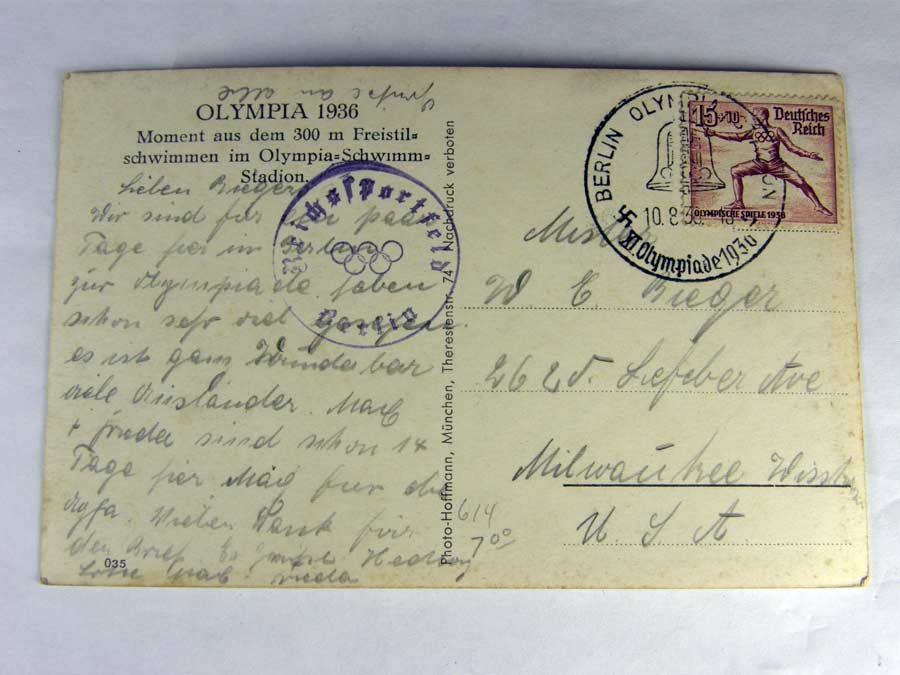 Grüße an alle
OLYMPIA 1936
Moment aus dem 300 m Freistil=
schwimmen im Olympia=Schwimm=
Stadion.
Lieben Bieger
Wir sind für ein paar
Tage hier in Berlin
zur Olympiade haben
schon sehr viel gesehen
es ist ganz Wunderbar
viele Ausländer.
+ Frieda sind schon 14
Tage hier für die
Vielen Dank für
den Brief Es Hedwig
035
Reichssportfeld
Berlin
Photo-Hoffmann, München, Theresienstr. 74 Nachdruck verboten
BERLIN OLYMPIA STADION
10.8.36
XI. Olympiade 1936
15+10
Deutsches
Reich
OLYMPISCHE SPIELE 1936
Mister
W E Bieger
Lefeber Ave
Milwaukee
U. S. A
614
7 00